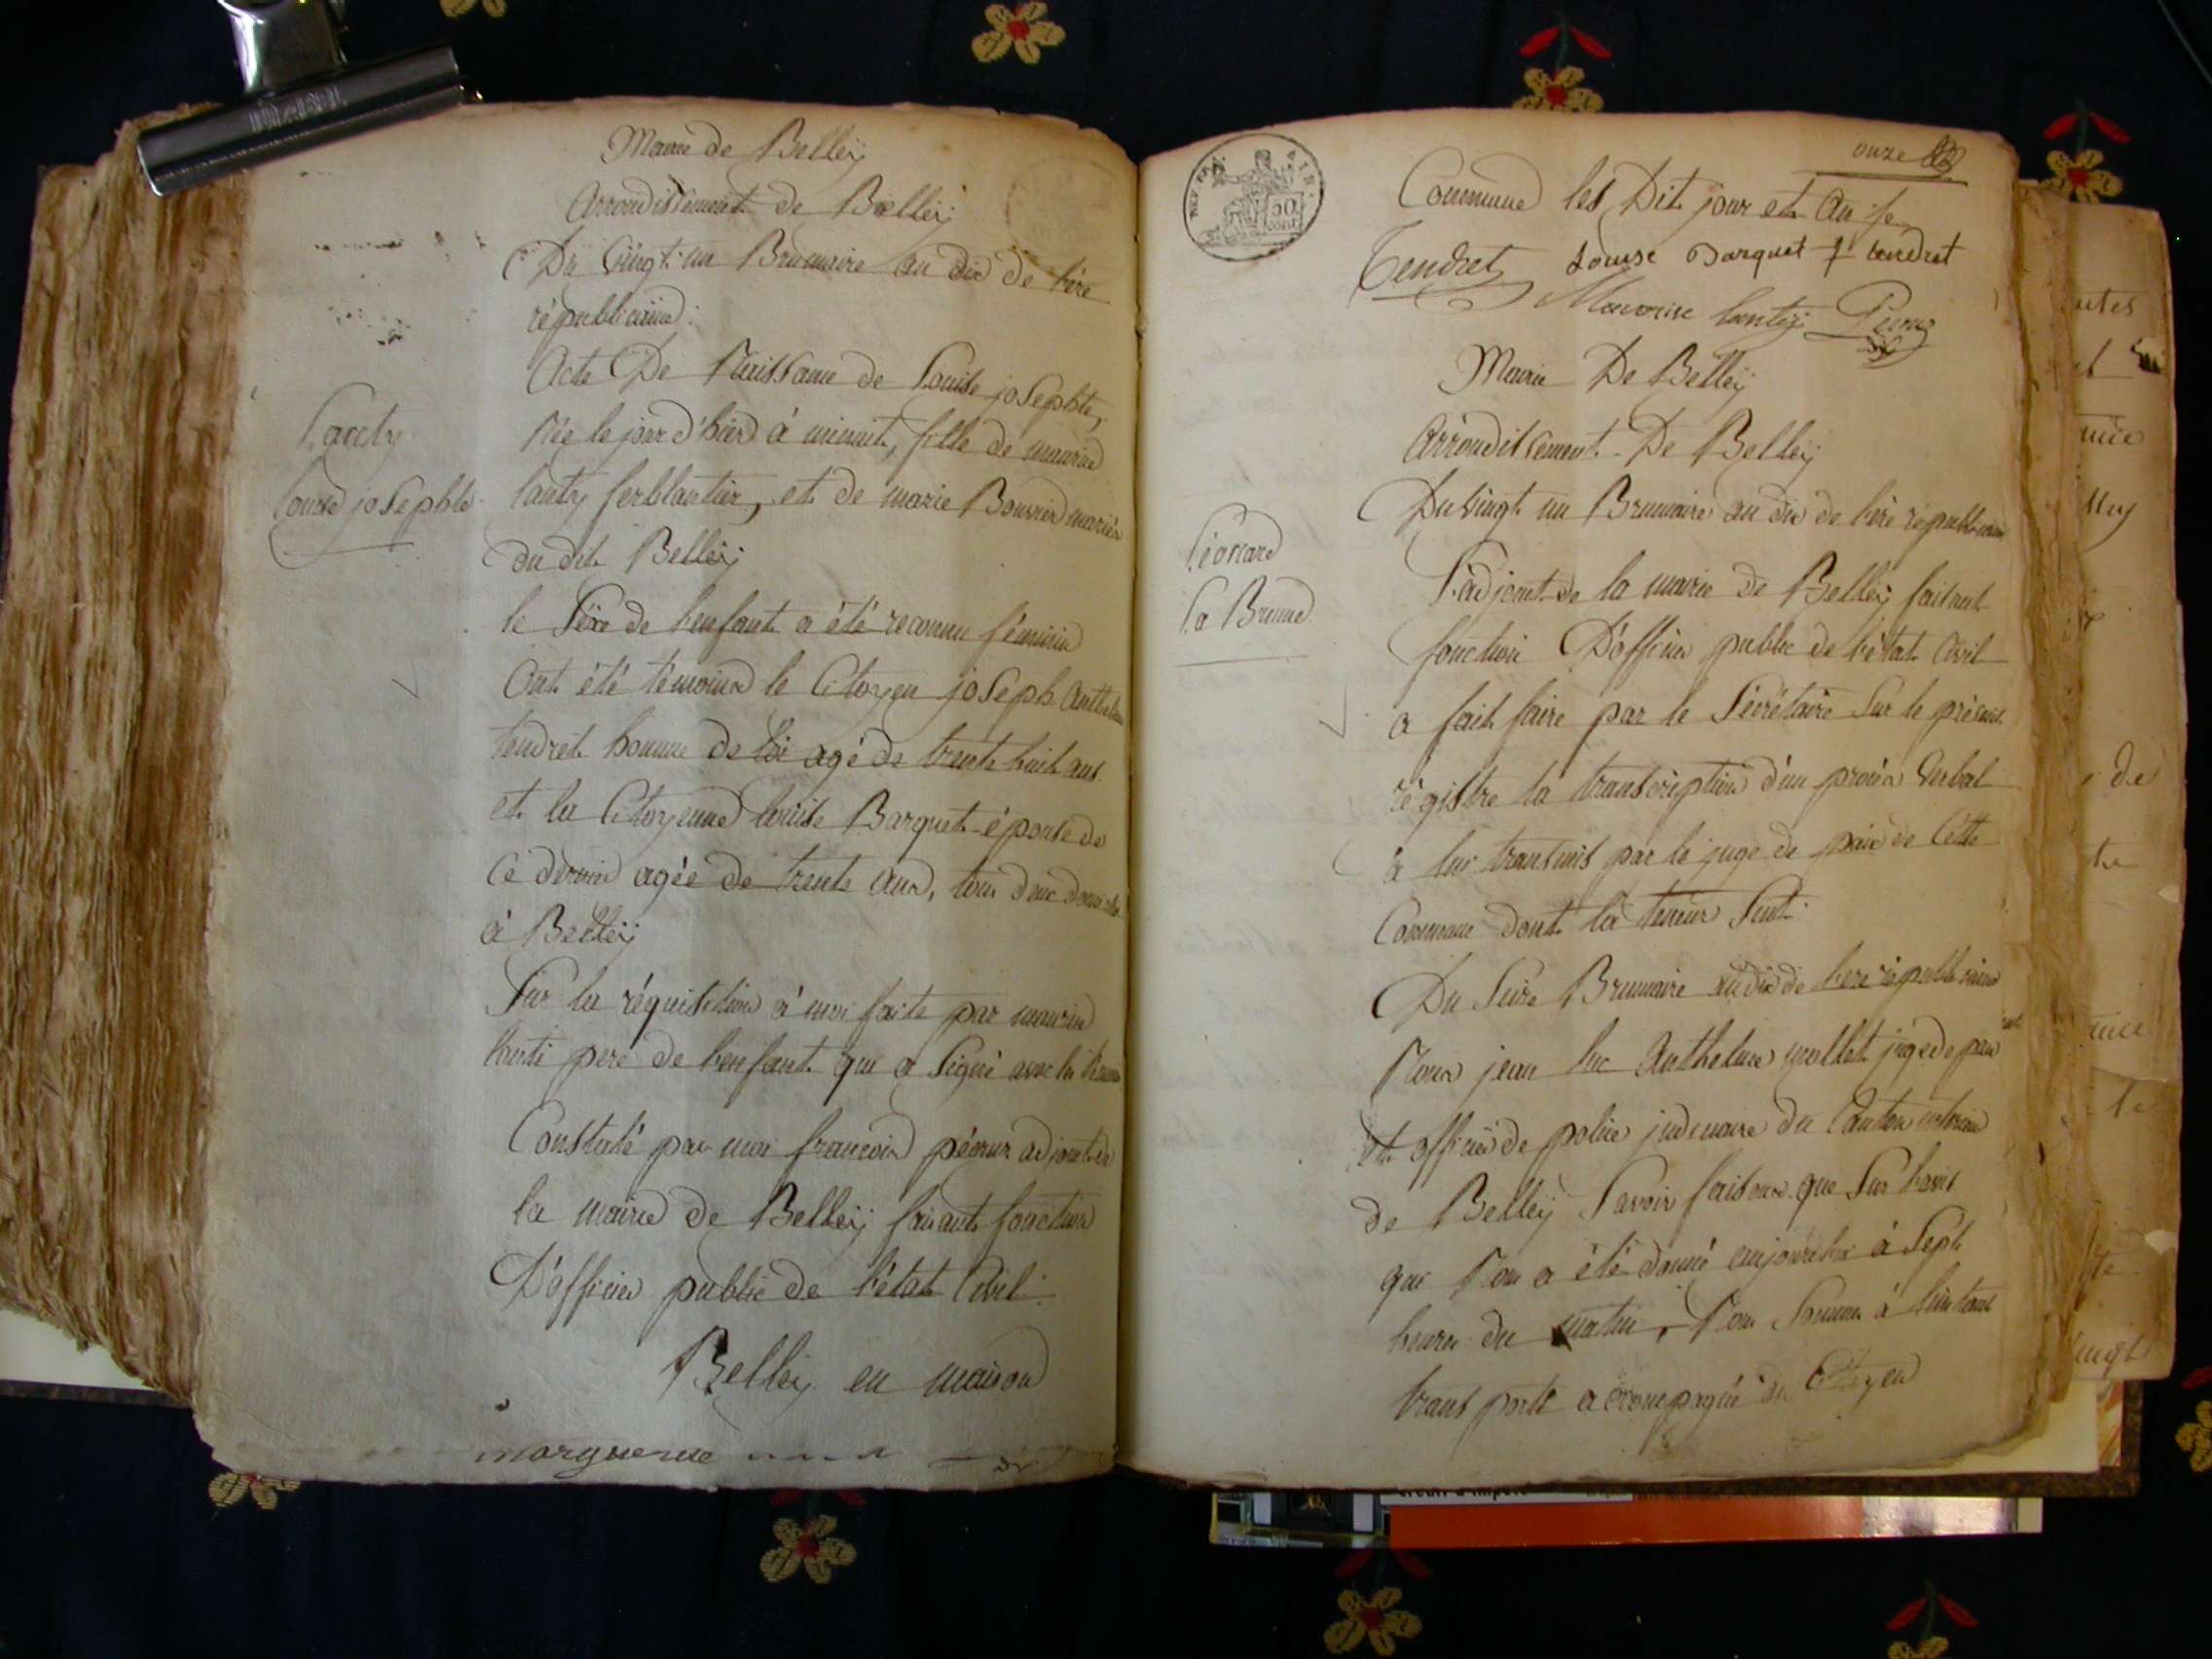 Mairie de Belleÿ
Arrondissement de Belleÿ
Du vingt un Brumaire an dix de l'ère
républicaine.
Acte De Naissance de Louise josephte,
Née le jour d'hier à minuit, fille de maurice
Lanty
Louise josephte
lanty ferblantier, et de marie Bouvier mariés
du dit Belleÿ
le Sèxe de l'enfant a été reconnu féminin
Ont été témoins le Citoyen joseph Anthelme
tendret homme de loi agé de trente huit ans
et la Citoyenne louise Barquet épouse de
Ce dernier agée de trente ans, tous deux
à Belleÿ
Sur la réquisition à moi faite par maurice
lanti pere de l'enfant qui a Signé avec les
Constaté par moi françois pécoux adjoint de
la mairie de Belleÿ faisant fonction
D'officier public de l'état Civil
Belleÿ en maison
onze
REP. FRA. AIN.
50 cent.
Commune les Dit jour et An
Tendret Louise Barquet f tendret
Maurice lanty
Mairie De Belleÿ
Arrondissement De Belleÿ
Du vingt un Brumaire an dix de l'ère républicaine
Léonard
La Brune
L'adjoint de la mairie de Belleÿ faisant
fonction D'officier public de l'état Civil
a fait faire par le Sécrétaire Sur le présent
régistre la transcription d'un procès verbal
à lui transmis par le juge de paix de Cette
Commune dont la teneur Suit.
Du Seize Brumaire an dix de l'ere républicaine
Nous jean luc Anthelme mollet juge de paix
et officier de police judiciaire du Canton
de Belleÿ Savoir faisons que Sur l'avis
qui Nous a été donné aujourdhui à Sept
heures du matin, Nous Sommes à l'instant
transporté accompagné du Citoyen